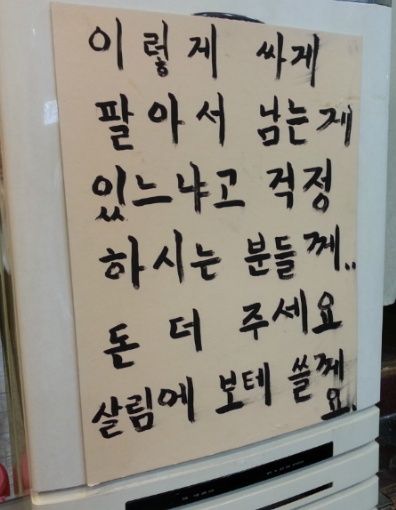 이렇게 싸게
팔아서 남는게
있느냐고 걱정
하시는 분들께..
돈 더 주세요
살림에 보테 쓸께
요.